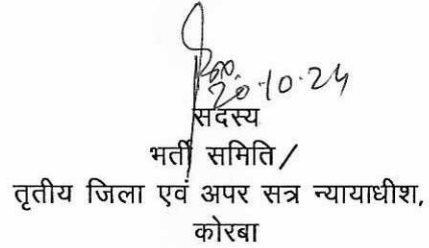 20.10.24
सदस्य
भर्ती समिति/
तृतीय जिला एवं अपर सत्र न्यायाधीश,
कोरबा